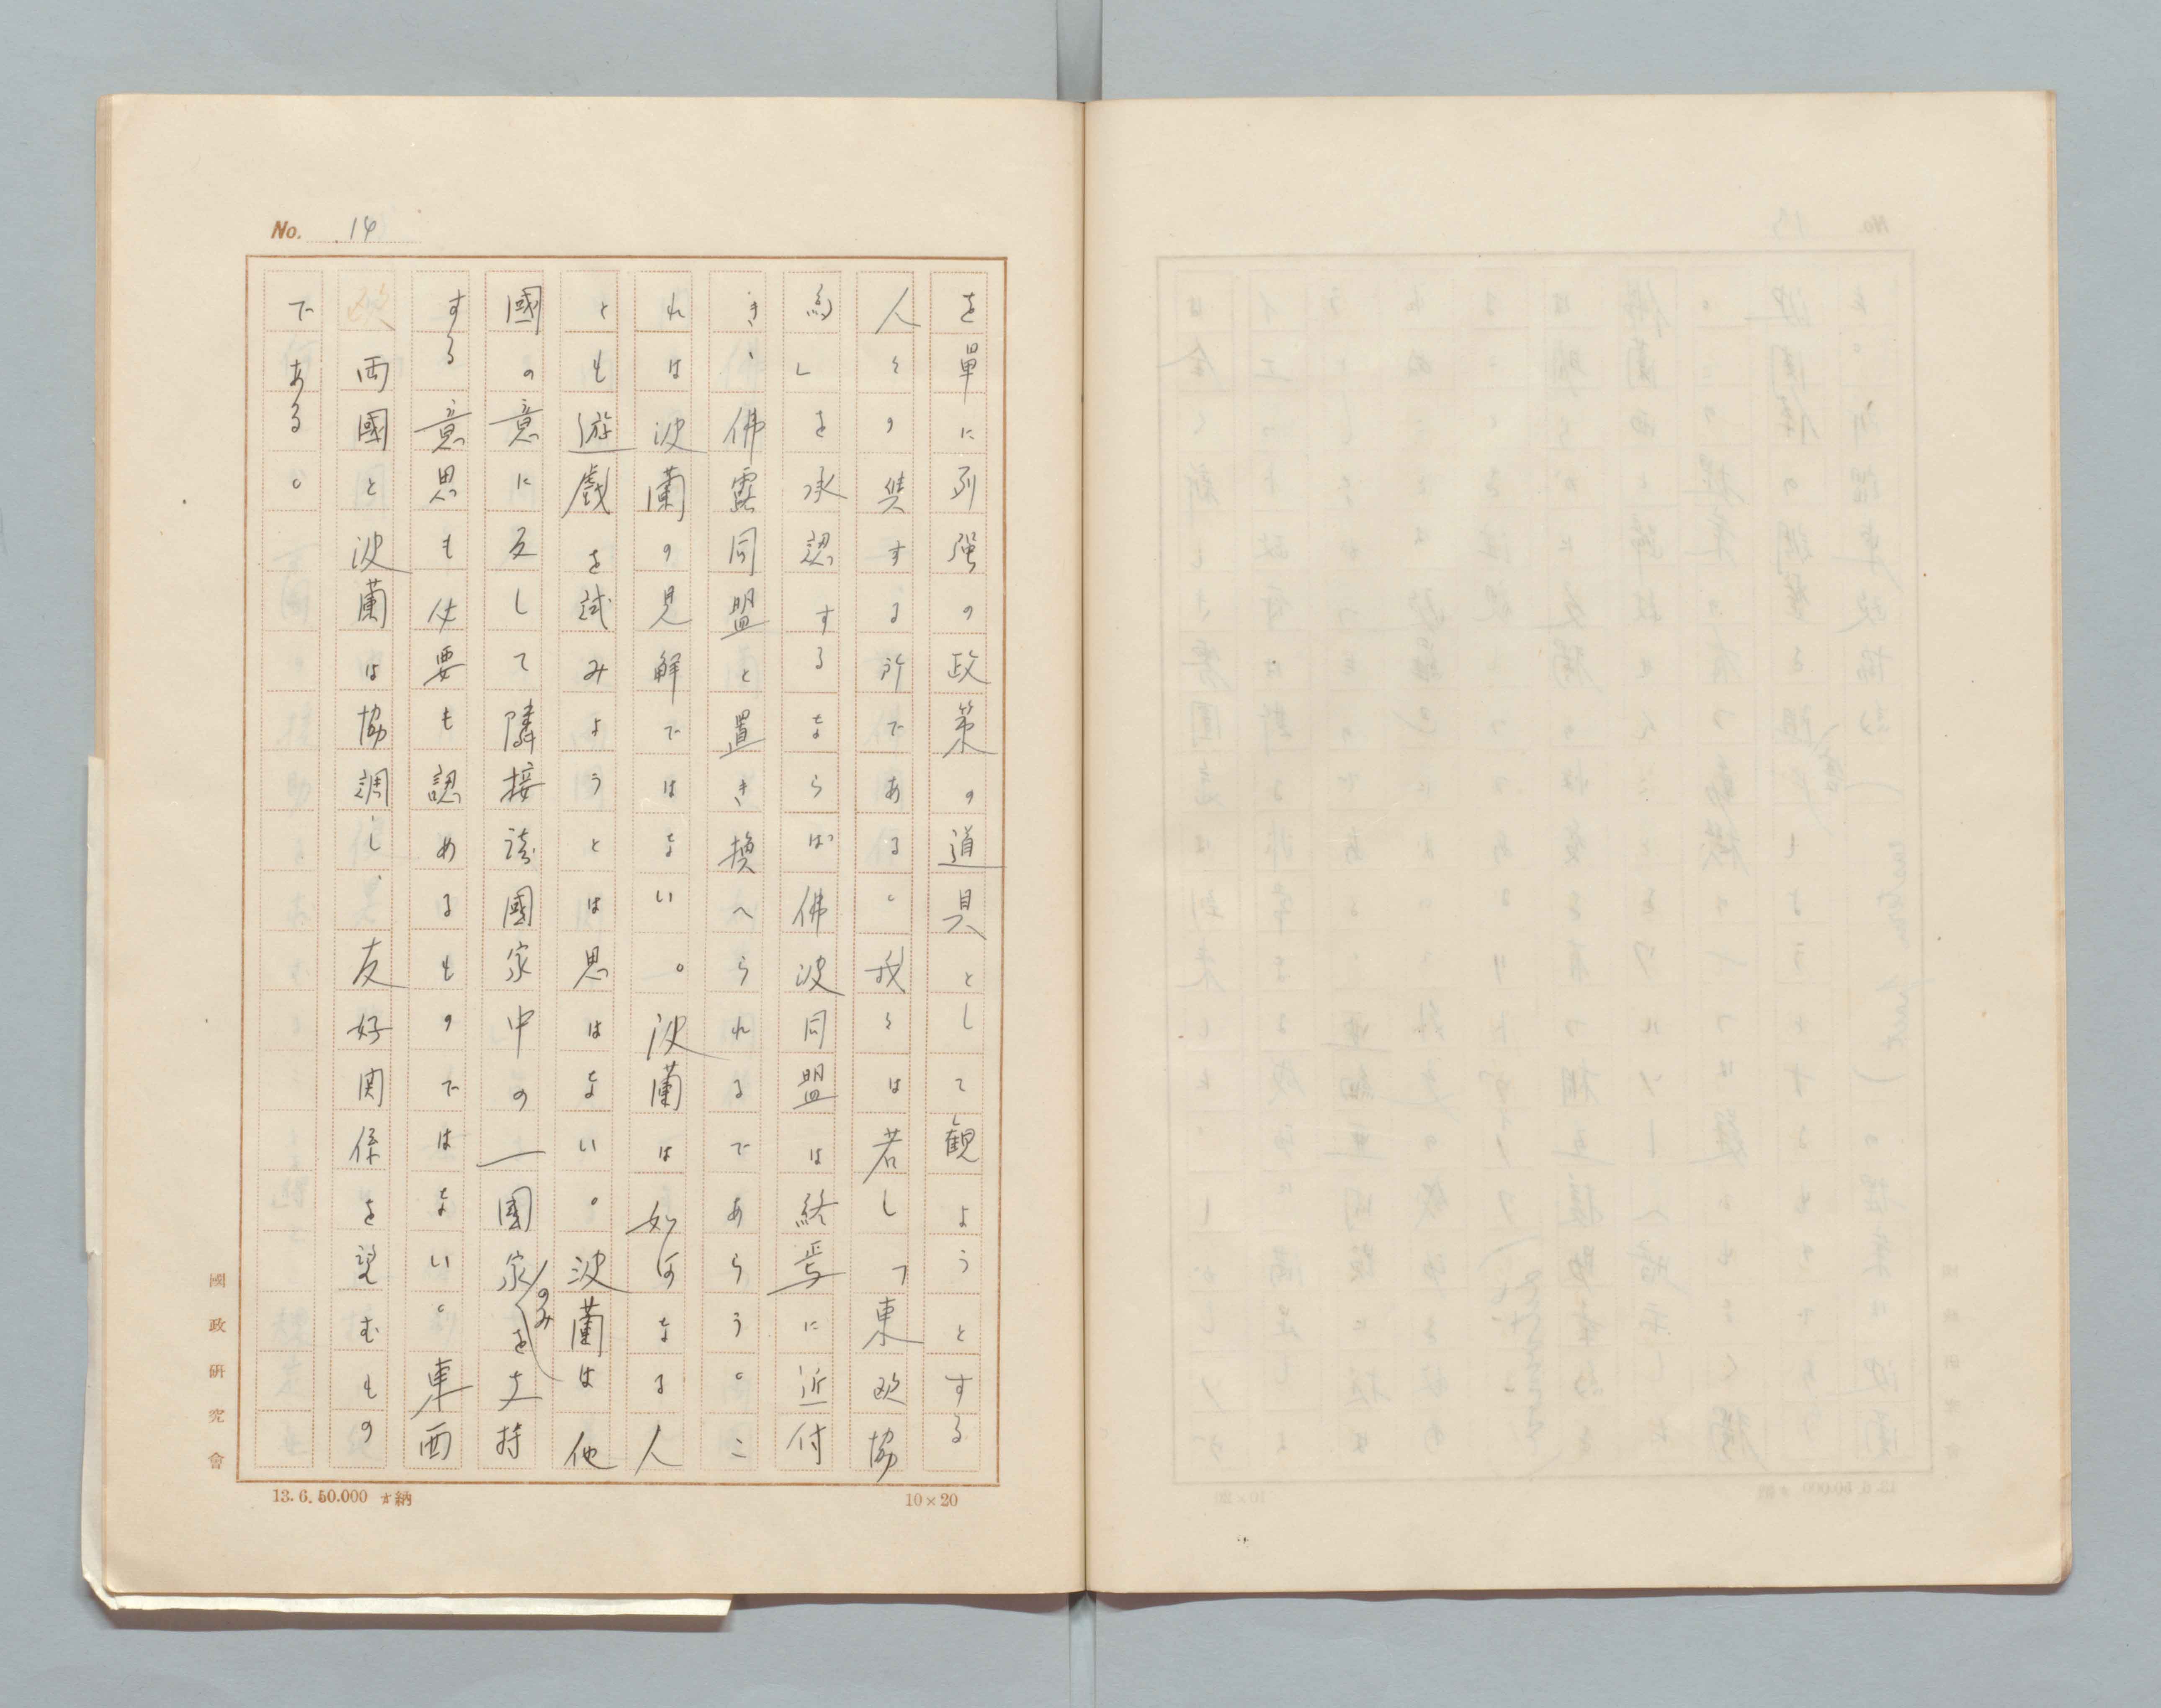 No. 14
を單に列强の政策の道具として観ようとする
人々の與する所である。我々は若し「東欧協
約」を承認するならば佛波同盟は終焉に近付
き、佛露同盟と置き換へられるであらう。こ
れは波蘭の見解ではない。波蘭は如何なる人
とも遊戯を試みようとは思はない。波蘭は他
國の意に反して隣接諸國家中の一國家のみを支持
する意思も必要も認めるものではない。東西
欧両國と波蘭は協調し、友好関係を望むもの
である。
國政研究會
13.6.50.000 納
10×20